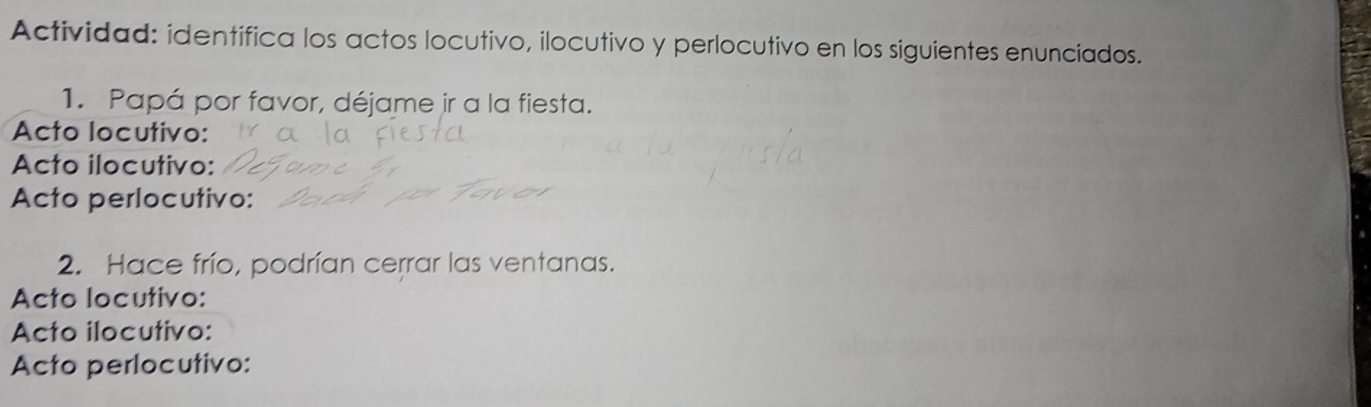 Actividad: identifica los actos locutivo, ilocutivo y perlocutivo en los siguientes enunciados.
1. Papá por favor, déjame ir a la fiesta.
Acto locutivo: ir a la fiesta
Acto ilocutivo: Dejame ir
Acto perlocutivo: Papá por favor
2. Hace frío, podrían cerrar las ventanas.
Acto locutivo:
Acto ilocutivo:
Acto perlocutivo: